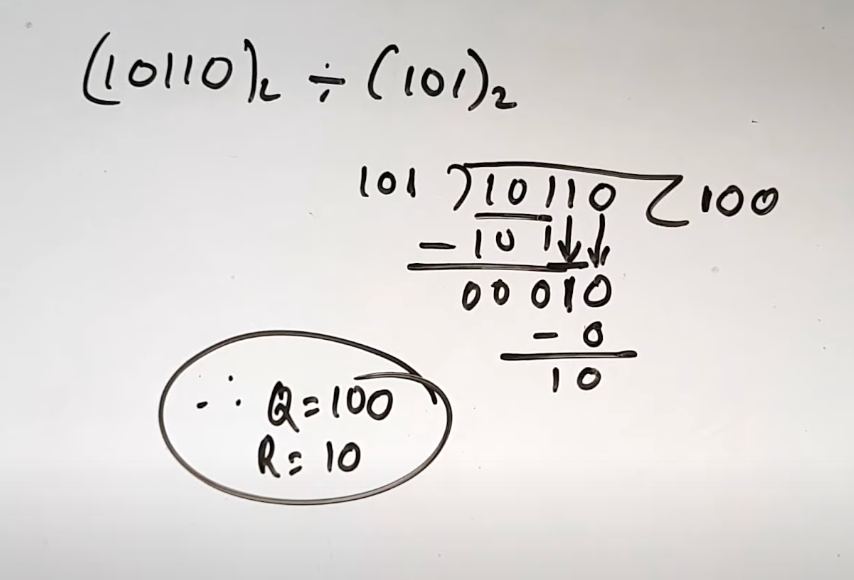 (10110)₂ ÷ (101)₂
101 ) 10110 ( 100
- 101
00010
- 0
10
∴ Q = 100
R = 10